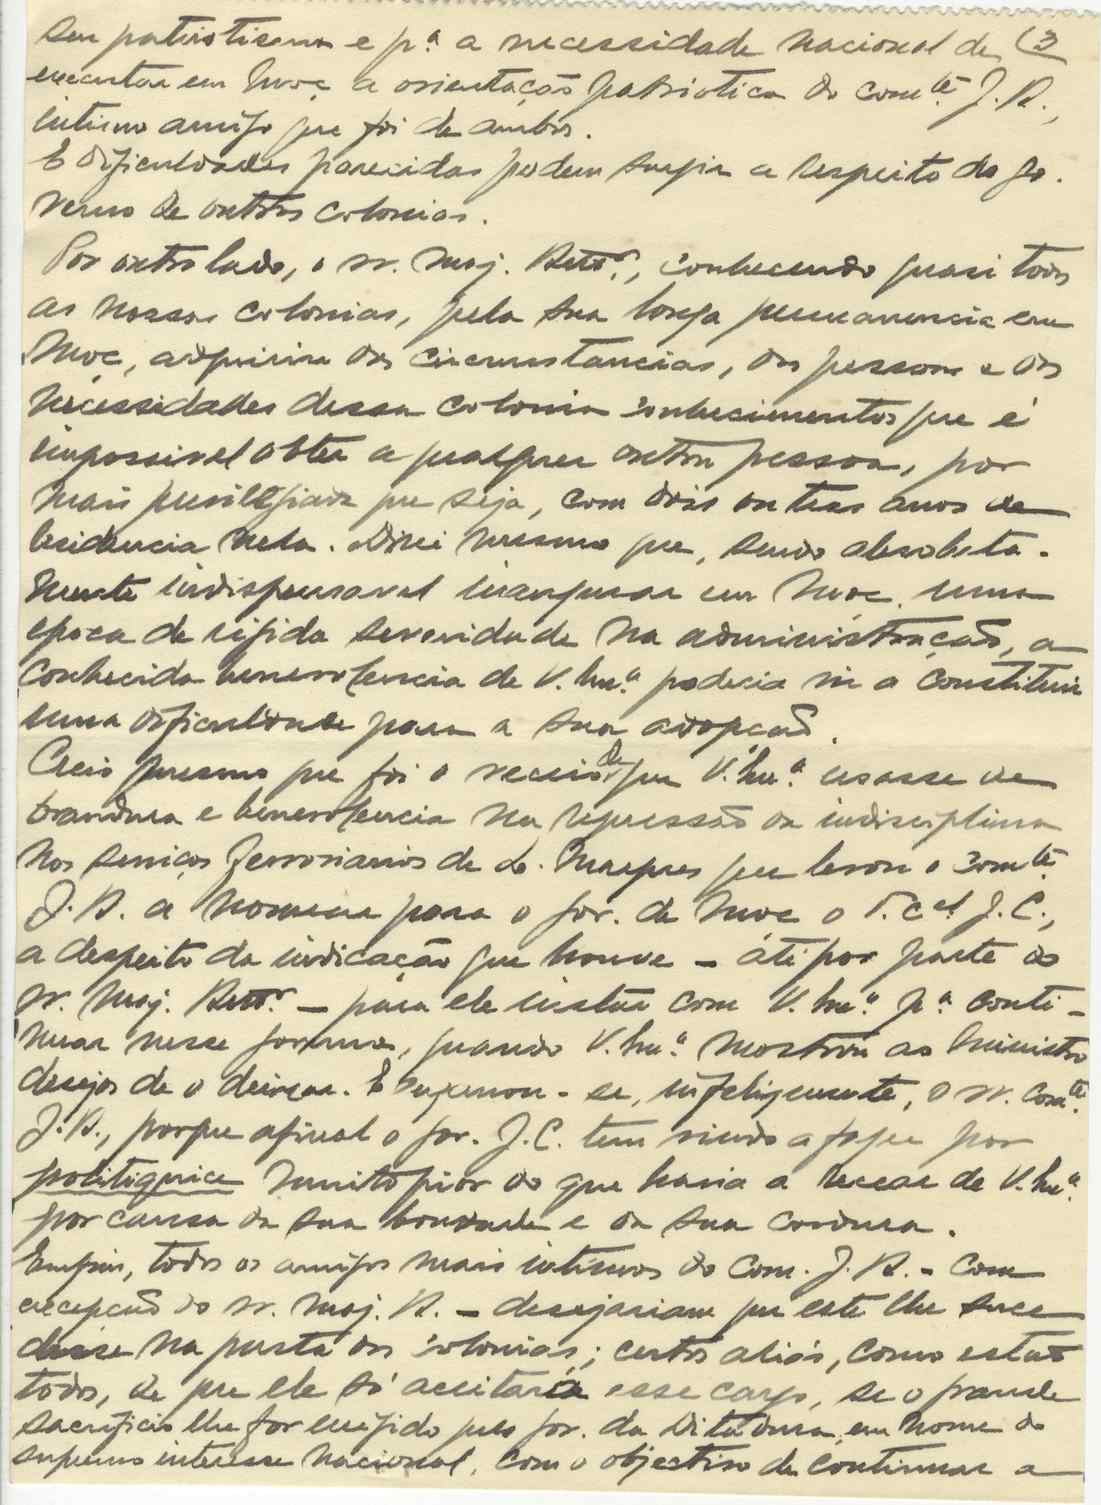 seu patriotismo e p.ª a necessidade nacional de (3
executar em Moç. a orientação patriotica do com.te J. B.,
intimo amigo que foi de ambos.
E dificuldades parecidas podem surgir a respeito do go-
verno de outras colonias.
Por outro lado, o sr. Maj. Bett.r, conhecendo quasi todas
as nossas colonias, pela sua longa permanencia em
Moç., adquirira das circumstancias, das pessoas e das
necessidades dessa colonia conhecimentos que é
impossivel obter a qualquer outra pessoa, por
mais previlegiada que seja, com dois ou tres anos de
residencia nela. Direi mesmo que, sendo absoluta-
mente indispensavel inaugurar em Moç. uma
epoca de rigida severidade na administração, a
conhecida benevolencia de V. Ex.ª poderia vir a constituir
uma dificuldade para a sua adopção.
Creio mesmo que foi o receio de que V. Ex.ª usasse de
brandura e benevolencia na repressão da indisciplina
nos serviços ferroviarios de L. Marques que levou o com.te
J. B. a nomear para o gov. de Moç. o T. C.el J. C.,
a despeito da indicação que houve – até por parte do
sr. Maj. Bett.r – para ele instar com V. Ex.ª p.ª conti-
nuar nesse governo, quando V. Ex.ª mostrou ao Ministro
desejos de o deixar. Enganou-se, infelizmente, o sr. Com.te
J. B., porque afinal o gov. J. C. tem vindo a fazer por
politiquice muito pior do que havia a recear de V. Ex.ª
por causa da sua bondade e da sua cordura.
Enfim, todos os amigos mais intimos do Com. J. B. – com
excepção do sr. Maj. B. – desejariam que este lhe suce
desse na pasta das colonias; certos aliás, como estão
todos, de que ele só aceitaria esse cargo, se o grande
sacrificio lhe for exigido pelo gov. da Ditadura, em nome do
supremo interesse nacional, com o objectivo de continuar a